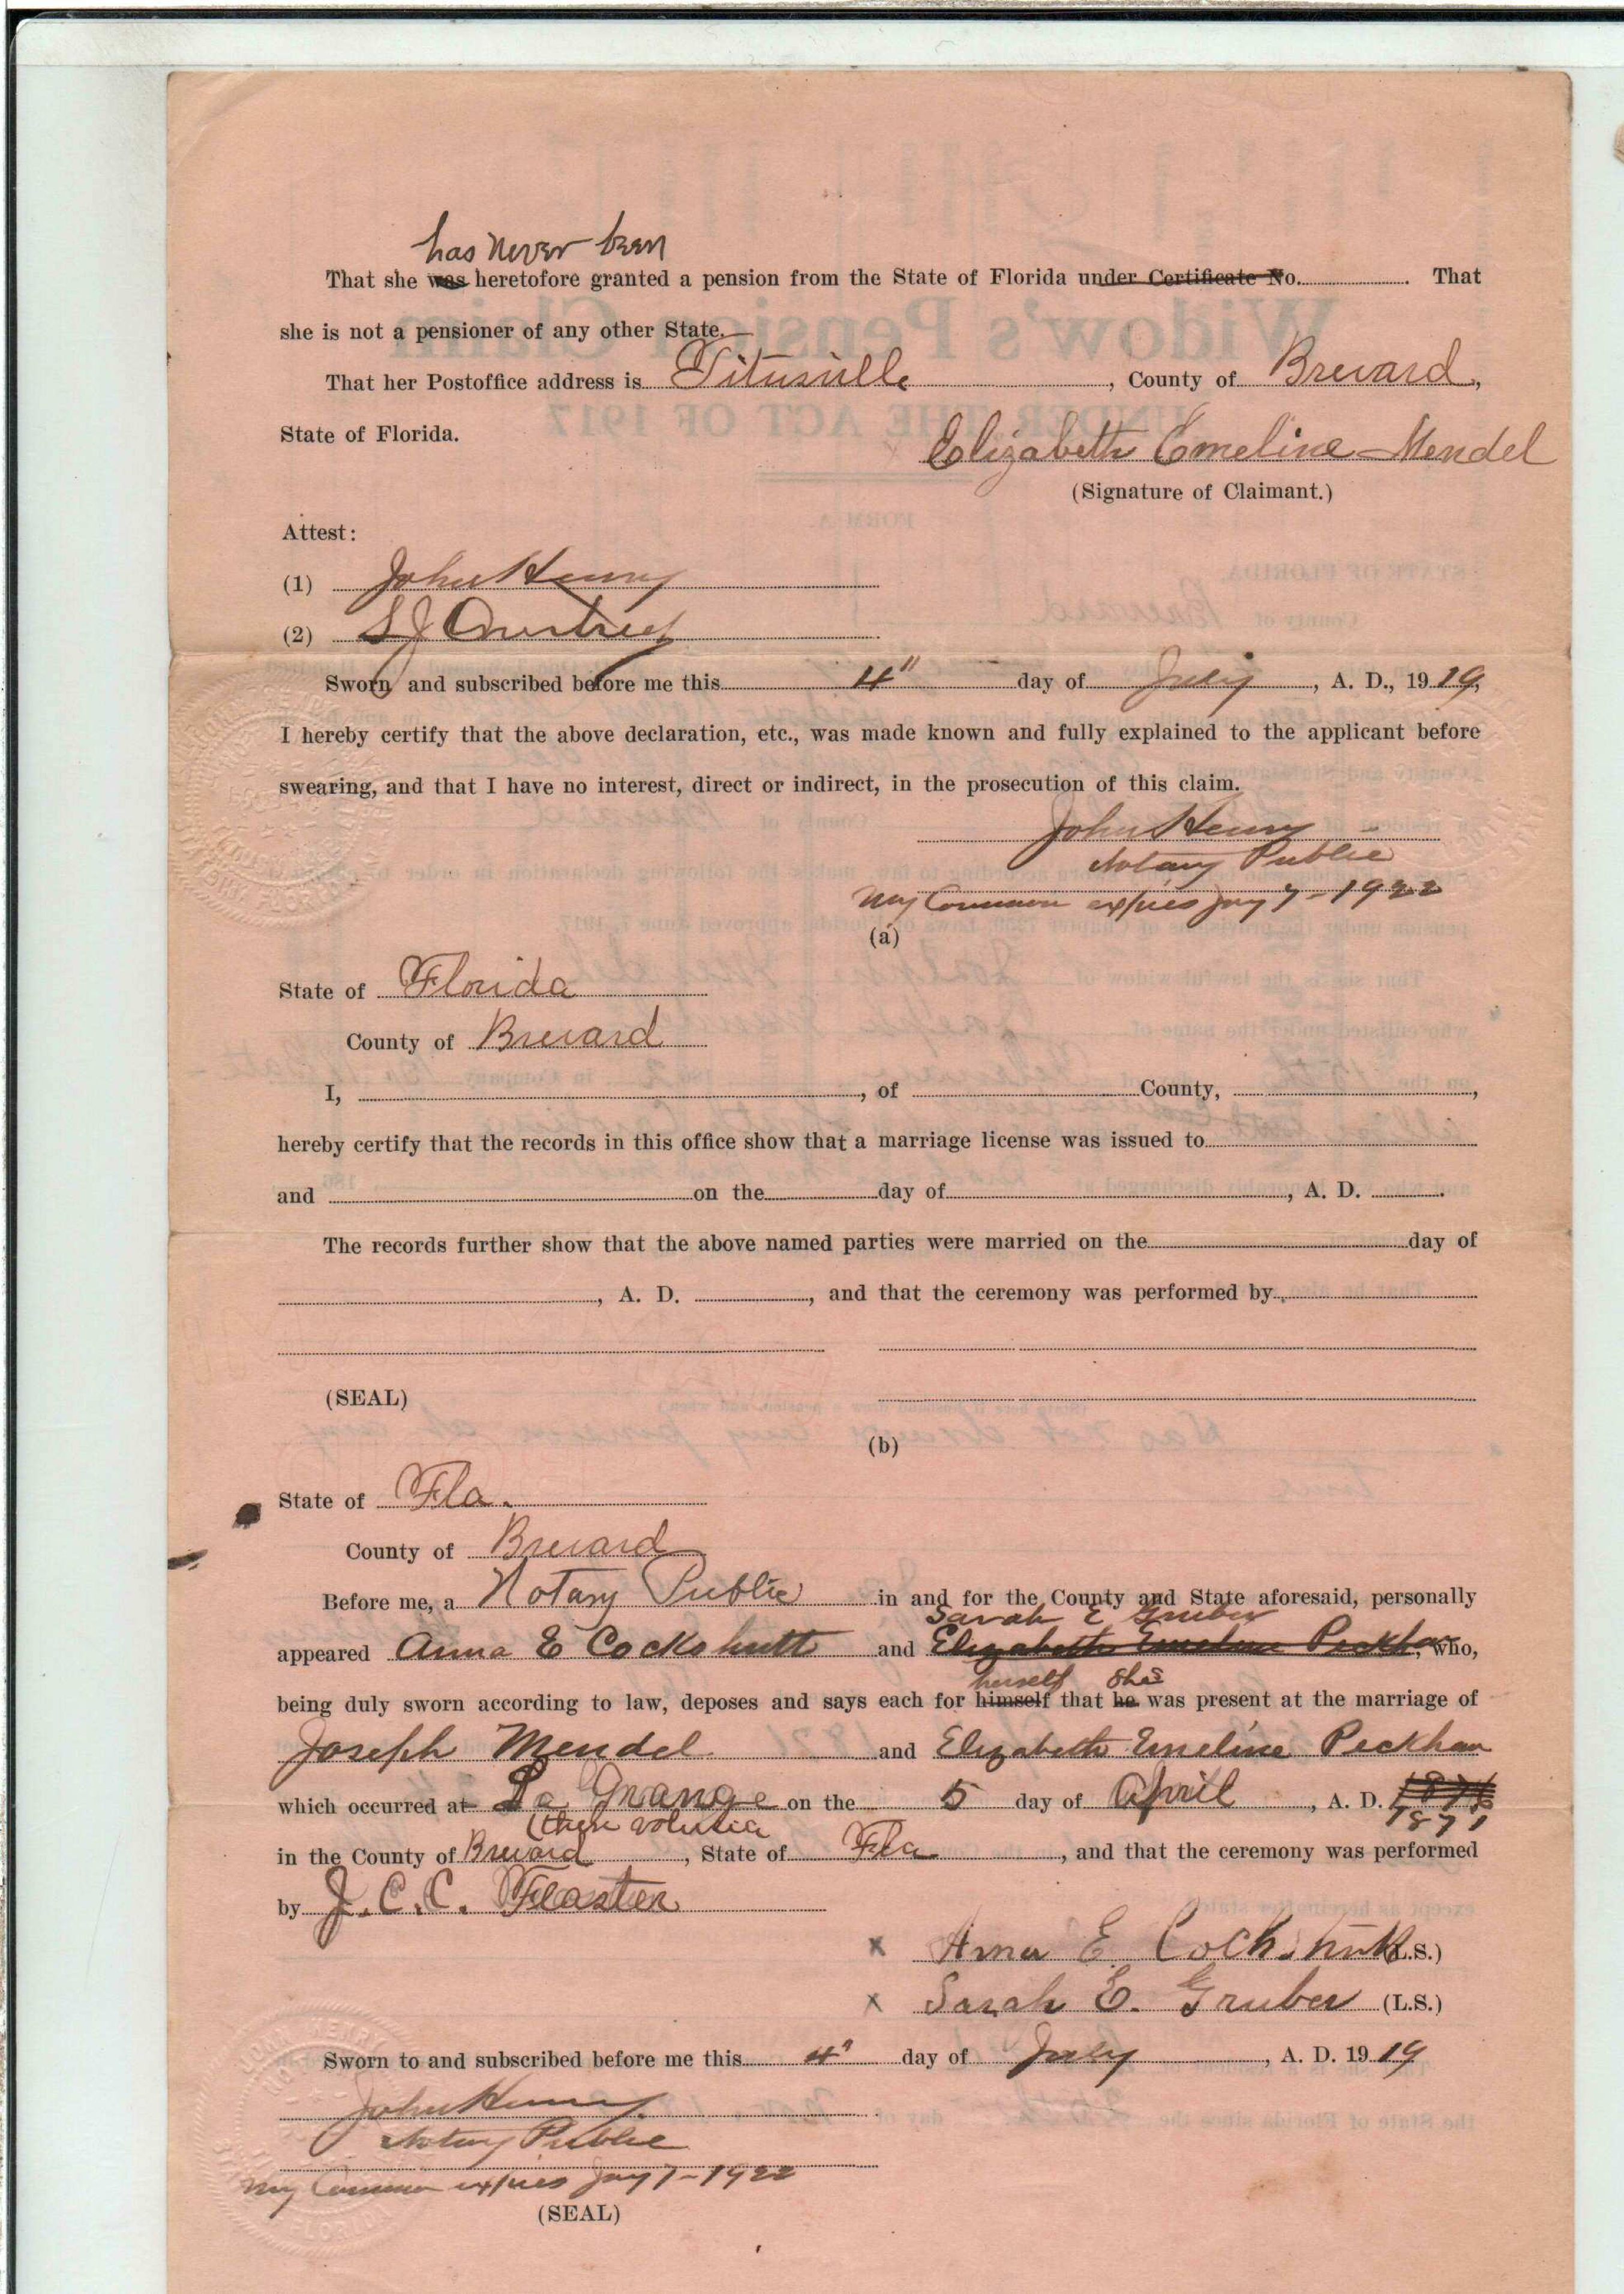 has never been
That she was heretofore granted a pension from the State of Florida under Certificate No. . That
she is not a pensioner of any other State.
That her Postoffice address is Titusville , County of Brevard,
State of Florida.
Elizabeth Emeline Mendel
(Signature of Claimant.)
Attest:
(1) John Henry
(2) S J Overstreet
Sworn and subscribed before me this 4" day of July , A. D., 19 19,
I hereby certify that the above declaration, etc., was made known and fully explained to the applicant before
swearing, and that I have no interest, direct or indirect, in the prosecution of this claim.
John Henry
Notary Public
My Commission expires Jany 7 - 1922
(a)
State of Florida
County of Brevard
I, , of County, ,
hereby certify that the records in this office show that a marriage license was issued to
and on the day of , A. D. .
The records further show that the above named parties were married on the day of
, A. D. , and that the ceremony was performed by
(SEAL)
(b)
State of Fla.
County of Brevard
Before me, a Notary Public in and for the County and State aforesaid, personally
Sarah E Gruber
appeared Anna E Cockshutt and Elizabeth Emeline Peckham, who,
herself she
being duly sworn according to law, deposes and says each for himself that he was present at the marriage of
Joseph Mendel and Elizabeth Emeline Peckham
which occurred at La Grange on the 5 day of April , A. D. 1871
(then Volusia
in the County of Brevard , State of Fla , and that the ceremony was performed
by J. C. C. Feaster
x Anna E Cockshutt (L.S.)
x Sarah E. Gruber (L.S.)
Sworn to and subscribed before me this 4" day of July , A. D. 19 19
John Henry
Notary Public
My Commission expires Jany 7 - 1922
(SEAL)